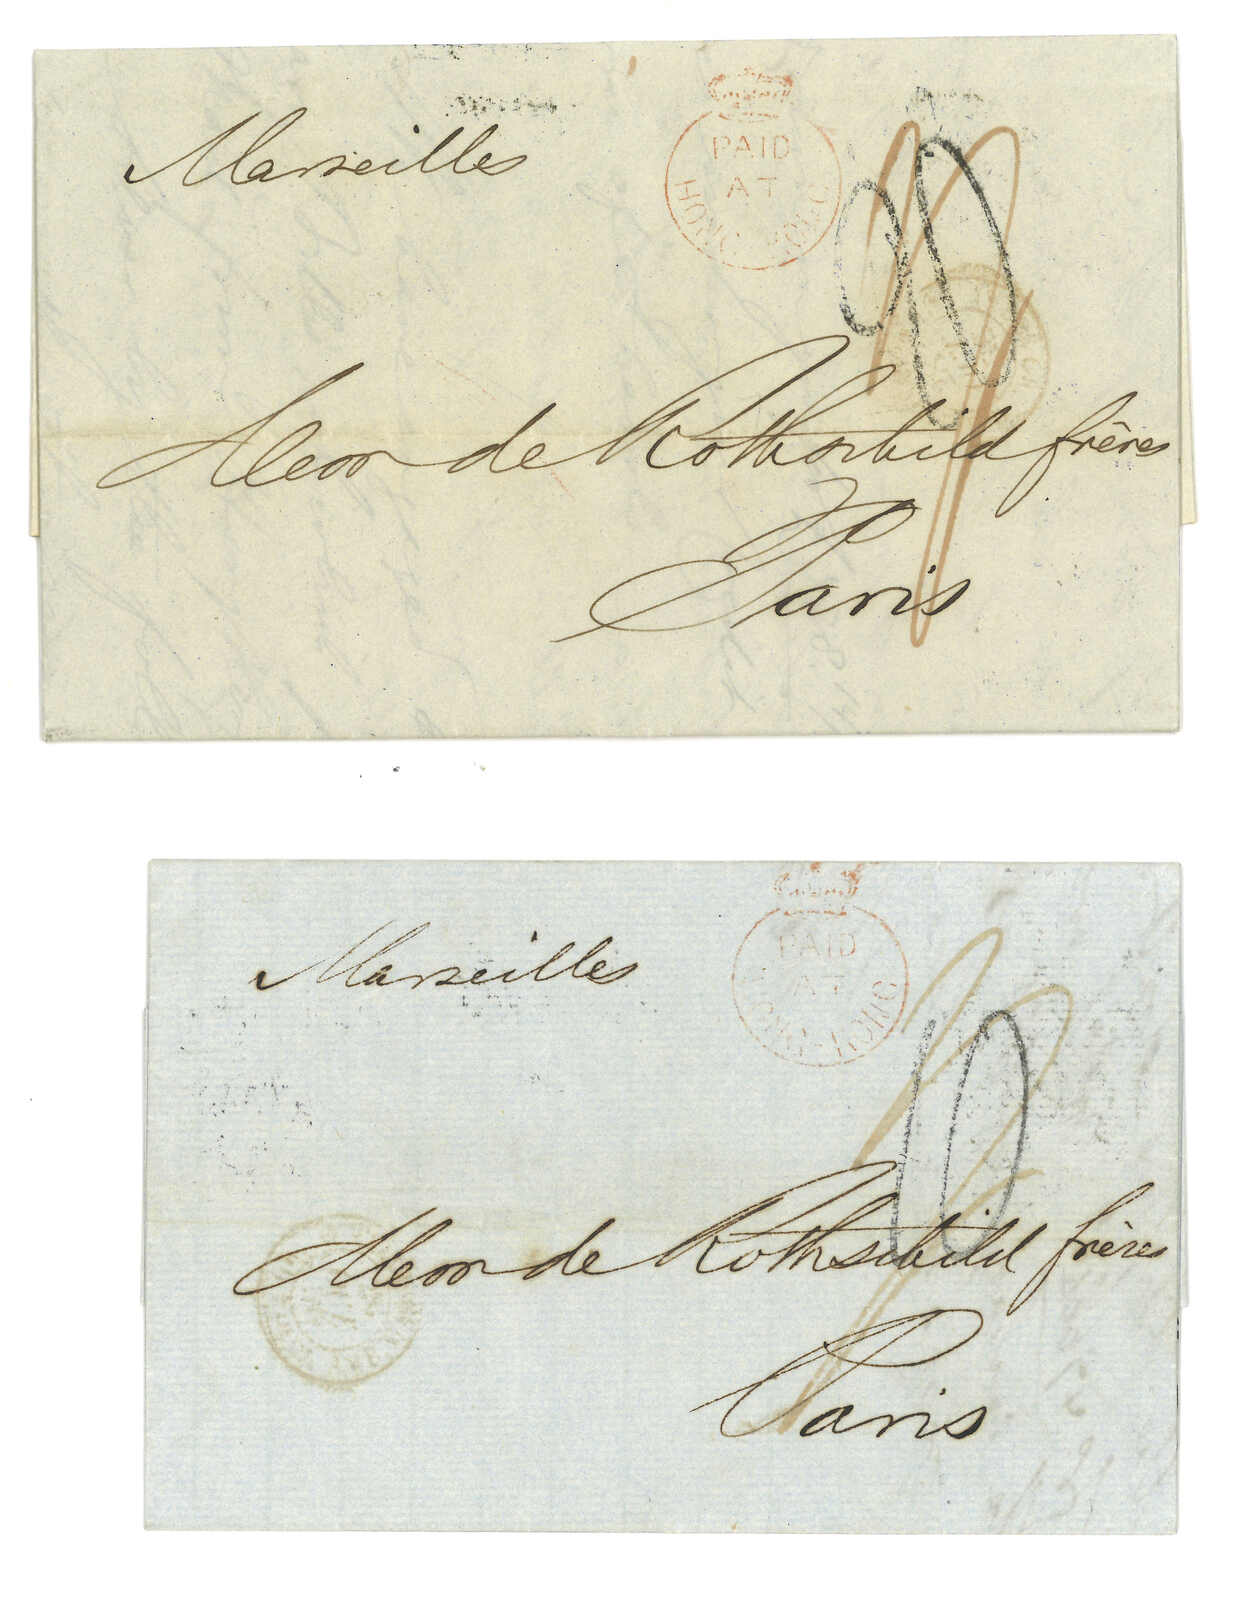 Marseilles
PAID
AT
HONG-KONG
20
Mess de Rothschild frères
Paris
Marseilles
PAID
AT
HONG-KONG
10
Mess de Rothschild frères
Paris